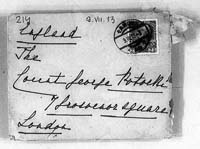 214 9.VII.13
England
The
Count George Potocki
7 Grosvenor Square
London